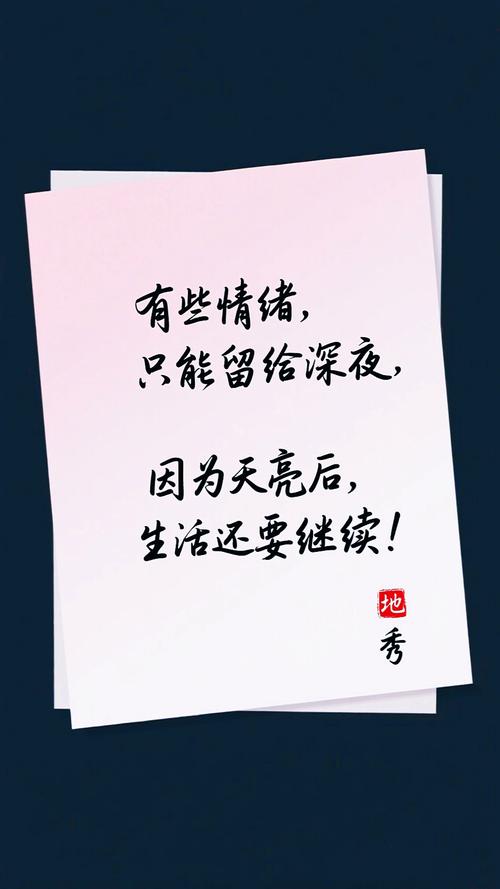 有些情绪，
只能留给深夜，
因为天亮后，
生活还要继续！
地
秀